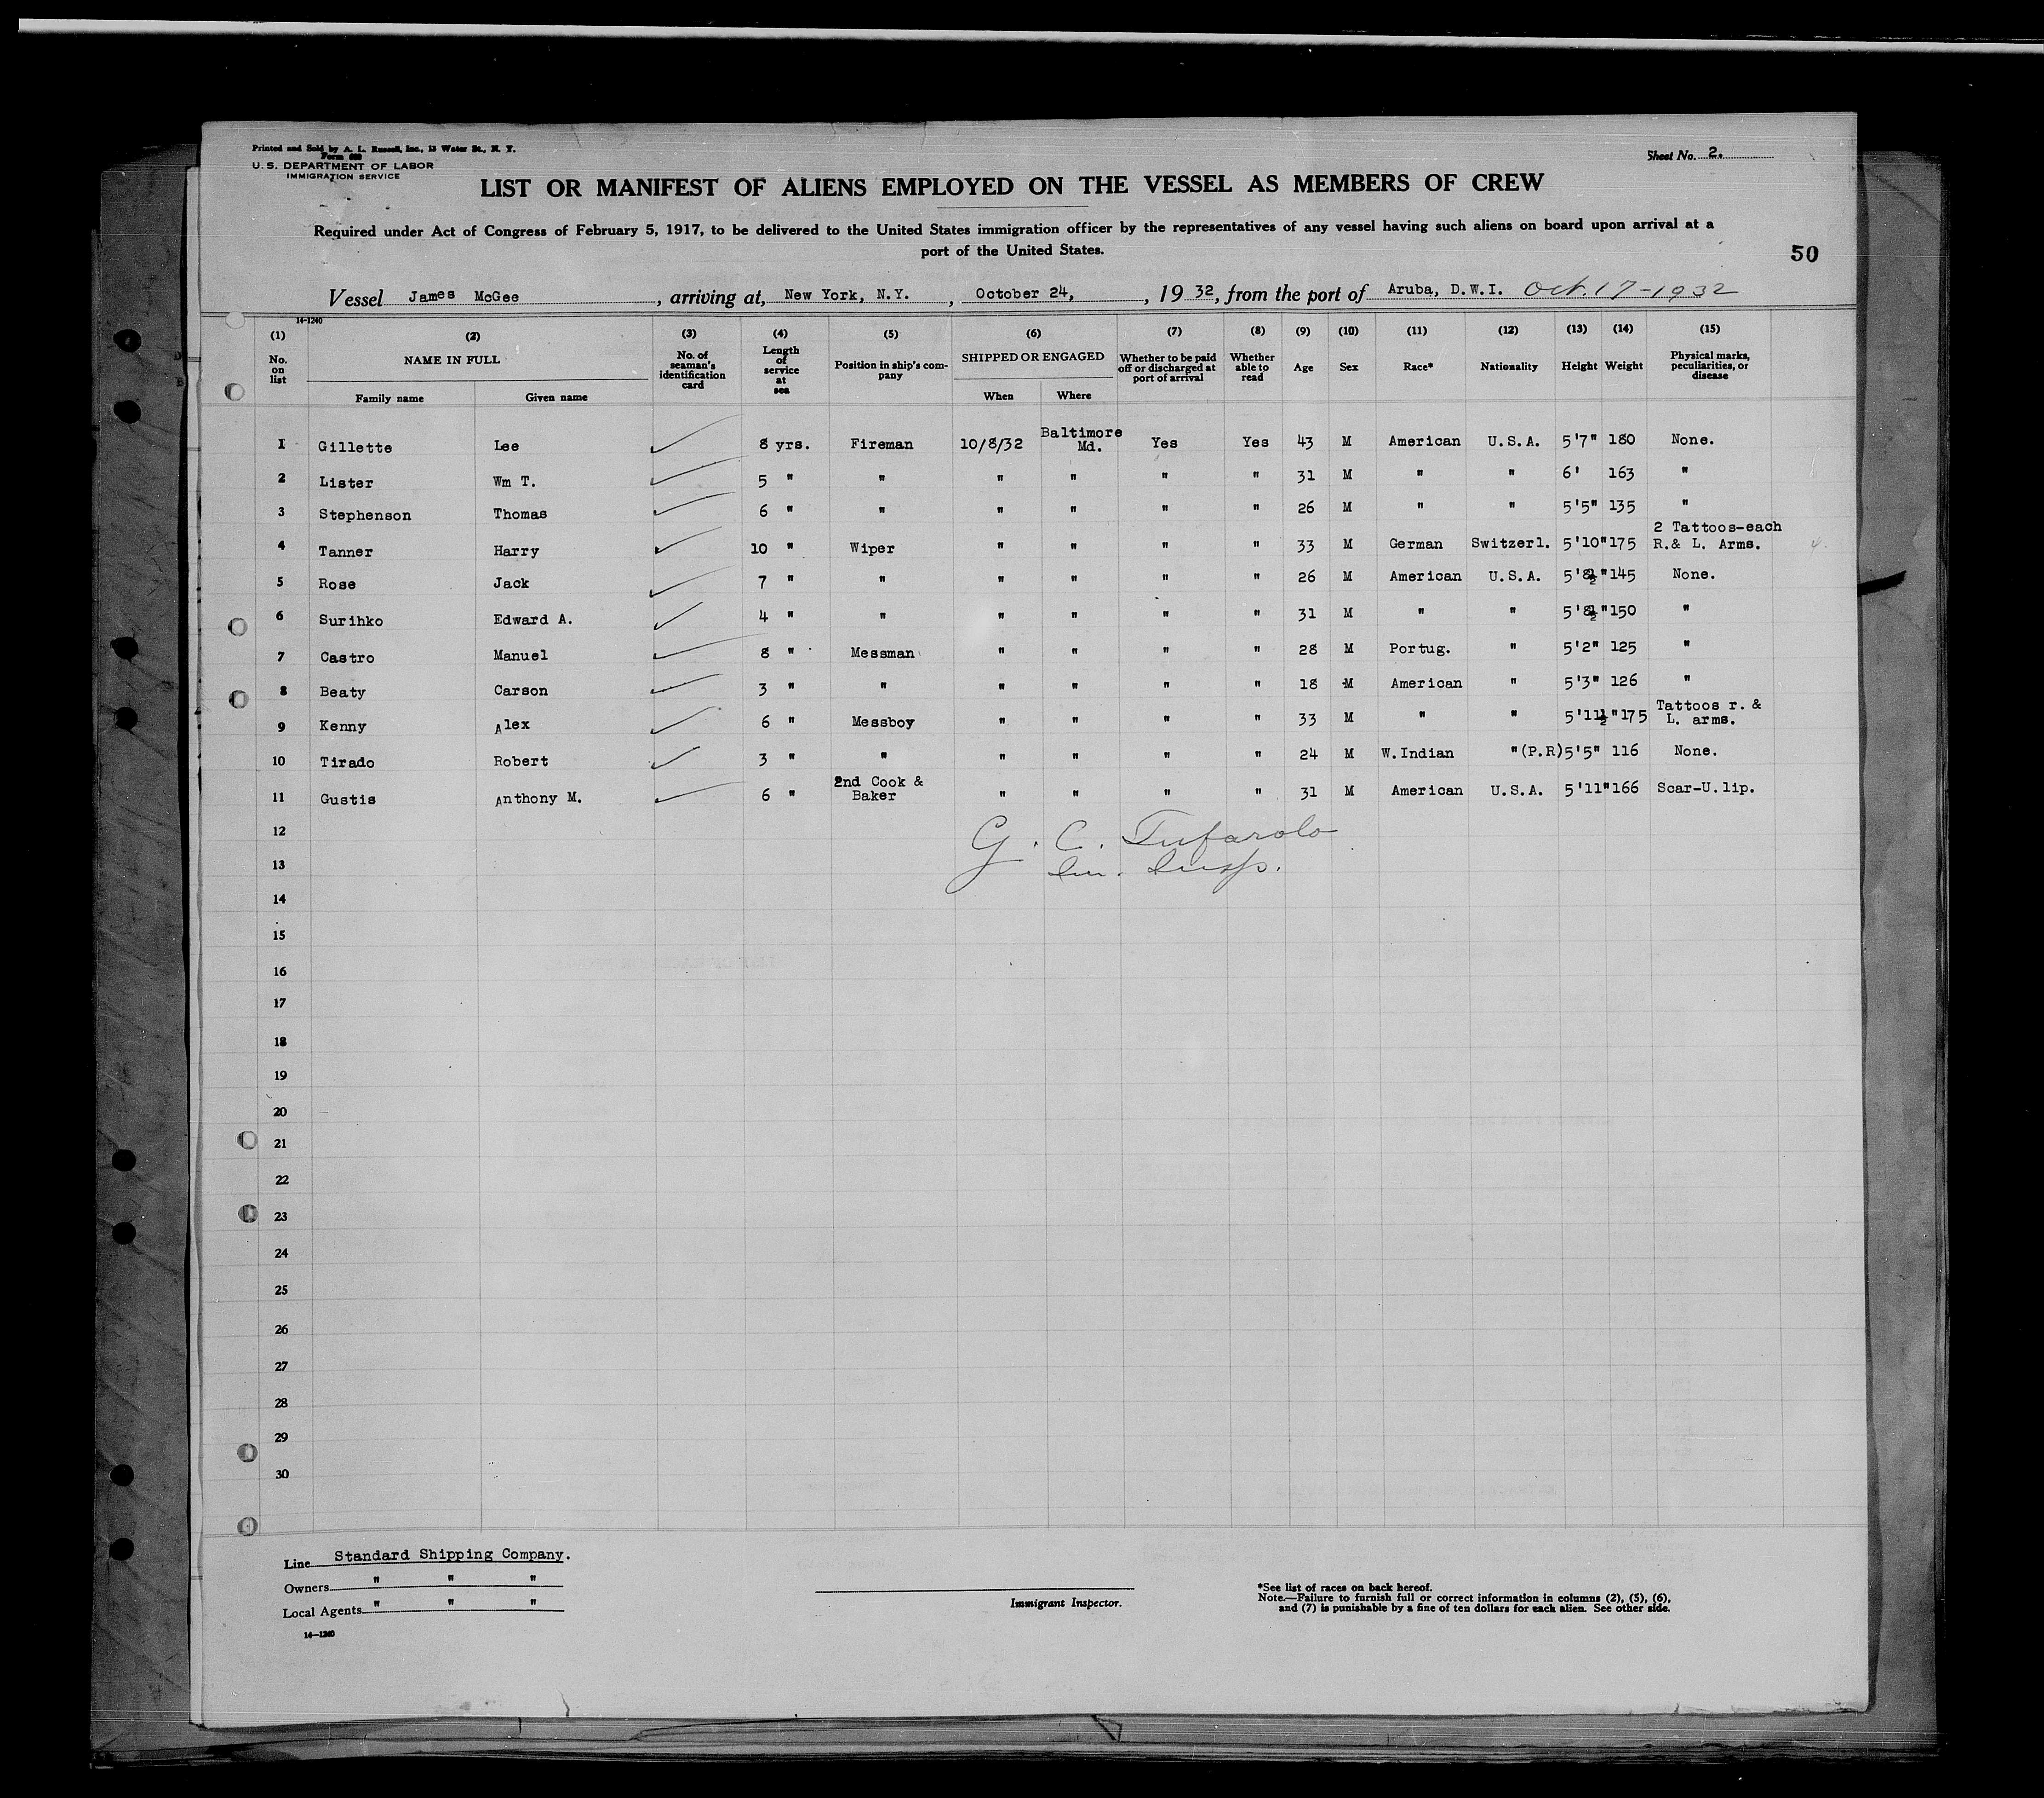 Printed and Sold by A. L. Russell, Inc., 13 Water St., N. Y.
Form 689
U. S. DEPARTMENT OF LABOR
IMMIGRATION SERVICE
Sheet No. 2.
LIST OR MANIFEST OF ALIENS EMPLOYED ON THE VESSEL AS MEMBERS OF CREW
Required under Act of Congress of February 5, 1917, to be delivered to the United States immigration officer by the representatives of any vessel having such aliens on board upon arrival at a
port of the United States.
50
Vessel James McGee, arriving at, New York, N.Y., October 24, , 19 32, from the port of Aruba, D.W.I. Oct. 17-1932
14-1240
(1) (2) (3) (4) (5) (6) (7) (8) (9) (10) (11) (12) (13) (14) (15)
No. on list NAME IN FULL No. of seaman's identification card Length of service at sea Position in ship's company SHIPPED OR ENGAGED Whether to be paid off or discharged at port of arrival Whether able to read Age Sex Race* Nationality Height Weight Physical marks, peculiarities, or disease
Family name Given name When Where
1 Gillette Lee 8 yrs. Fireman 10/8/32 Baltimore Md. Yes Yes 43 M American U.S.A. 5'7" 180 None.
2 Lister Wm T. 5 " " " " " " 31 M " " 6' 163 "
3 Stephenson Thomas 6 " " " " " " 26 M " " 5'5" 135 "
4 Tanner Harry 10 " Wiper " " " " 33 M German Switzerl. 5'10" 175 2 Tattoos-each R.& L. Arms.
5 Rose Jack 7 " " " " " " 26 M American U.S.A. 5'8½" 145 None.
6 Surihko Edward A. 4 " " " " " " 31 M " " 5'8½" 150 "
7 Castro Manuel 8 " Messman " " " " 28 M Portug. " 5'2" 125 "
8 Beaty Carson 3 " " " " " " 18 M American " 5'3" 126 "
9 Kenny Alex 6 " Messboy " " " " 33 M " " 5'11½" 175 Tattoos r. & L. arms.
10 Tirado Robert 3 " " " " " " 24 M W.Indian "(P.R) 5'5" 116 None.
11 Gustis Anthony M. 6 " 2nd Cook & Baker " " " " 31 M American U.S.A. 5'11" 166 Scar-U.lip.
12
G. C. Tufarolo
13
Im. Insp.
14
15
16
17
18
19
20
21
22
23
24
25
26
27
28
29
30
Line Standard Shipping Company.
Owners " " "
Local Agents " " "
14-1240
Immigrant Inspector.
*See list of races on back hereof.
Note.—Failure to furnish full or correct information in columns (2), (5), (6),
and (7) is punishable by a fine of ten dollars for each alien. See other side.